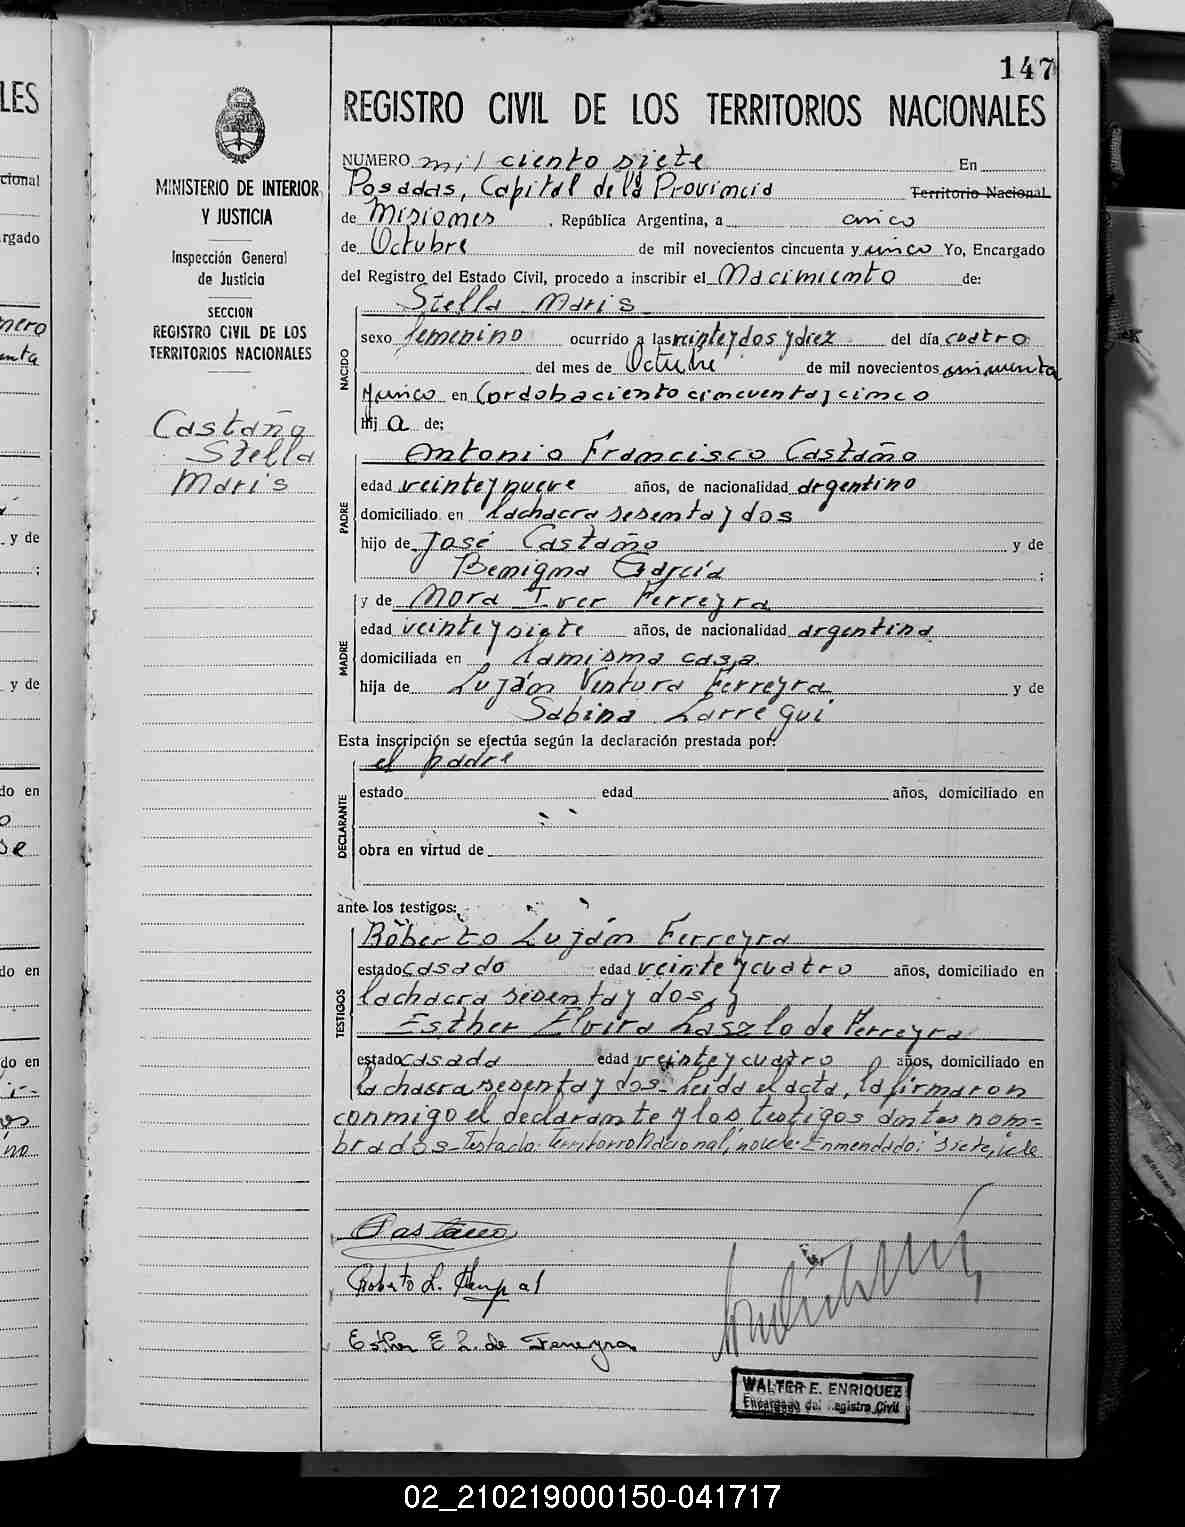 147
REGISTRO CIVIL DE LOS TERRITORIOS NACIONALES
MINISTERIO DE INTERIOR
Y JUSTICIA
Inspección General
de Justicia
SECCION
REGISTRO CIVIL DE LOS
TERRITORIOS NACIONALES
Castaño
Stella
Maris
NUMERO mil ciento siete En
Posadas, Capital de la Provincia Territorio Nacional
de Misiones, República Argentina, a cinco
de Octubre de mil novecientos cincuenta y cinco Yo, Encargado
del Registro del Estado Civil, procedo a inscribir el Nacimiento de:
NACIDO
Stella Maris
sexo femenino ocurrido a las veinte y dos y diez del día cuatro
del mes de Octubre de mil novecientos cincuenta
y cinco en Cordoba ciento cincuenta y cinco
hij a de:
PADRE
Antonio Francisco Castaño
edad veinte y nueve años, de nacionalidad argentino
domiciliado en la chacra sesenta y dos
hijo de José Castaño y de
Benigna García ;
MADRE
y de Nora Ferreyra
edad veinte y siete años, de nacionalidad argentina
domiciliada en la misma casa
hija de Luján Ventura Ferreyra y de
Sabina Larregui
Esta inscripción se efectúa según la declaración prestada por:
DECLARANTE
el padre
estado edad años, domiciliado en
obra en virtud de
ante los testigos:
TESTIGOS
Roberto Luján Ferreyra
estado casado edad veinte y cuatro años, domiciliado en
la chacra sesenta y dos, y
Esther Elvira Laszlo de Ferreyra
estado casada edad veinte y cuatro años, domiciliado en
la chacra sesenta y dos- Leida el acta, la firmaron
conmigo el declarante y los testigos antes nom=
brados- Testado: Territorio Nacional, Enmendado: siete,
Castaño
Roberto L.
Esther E L. de Ferreyra
WALTER E. ENRIQUEZ
Encargado del Registro Civil
LES
cional
rgado
y de
;
y de
do en
se
do en
do en
02_210219000150-041717